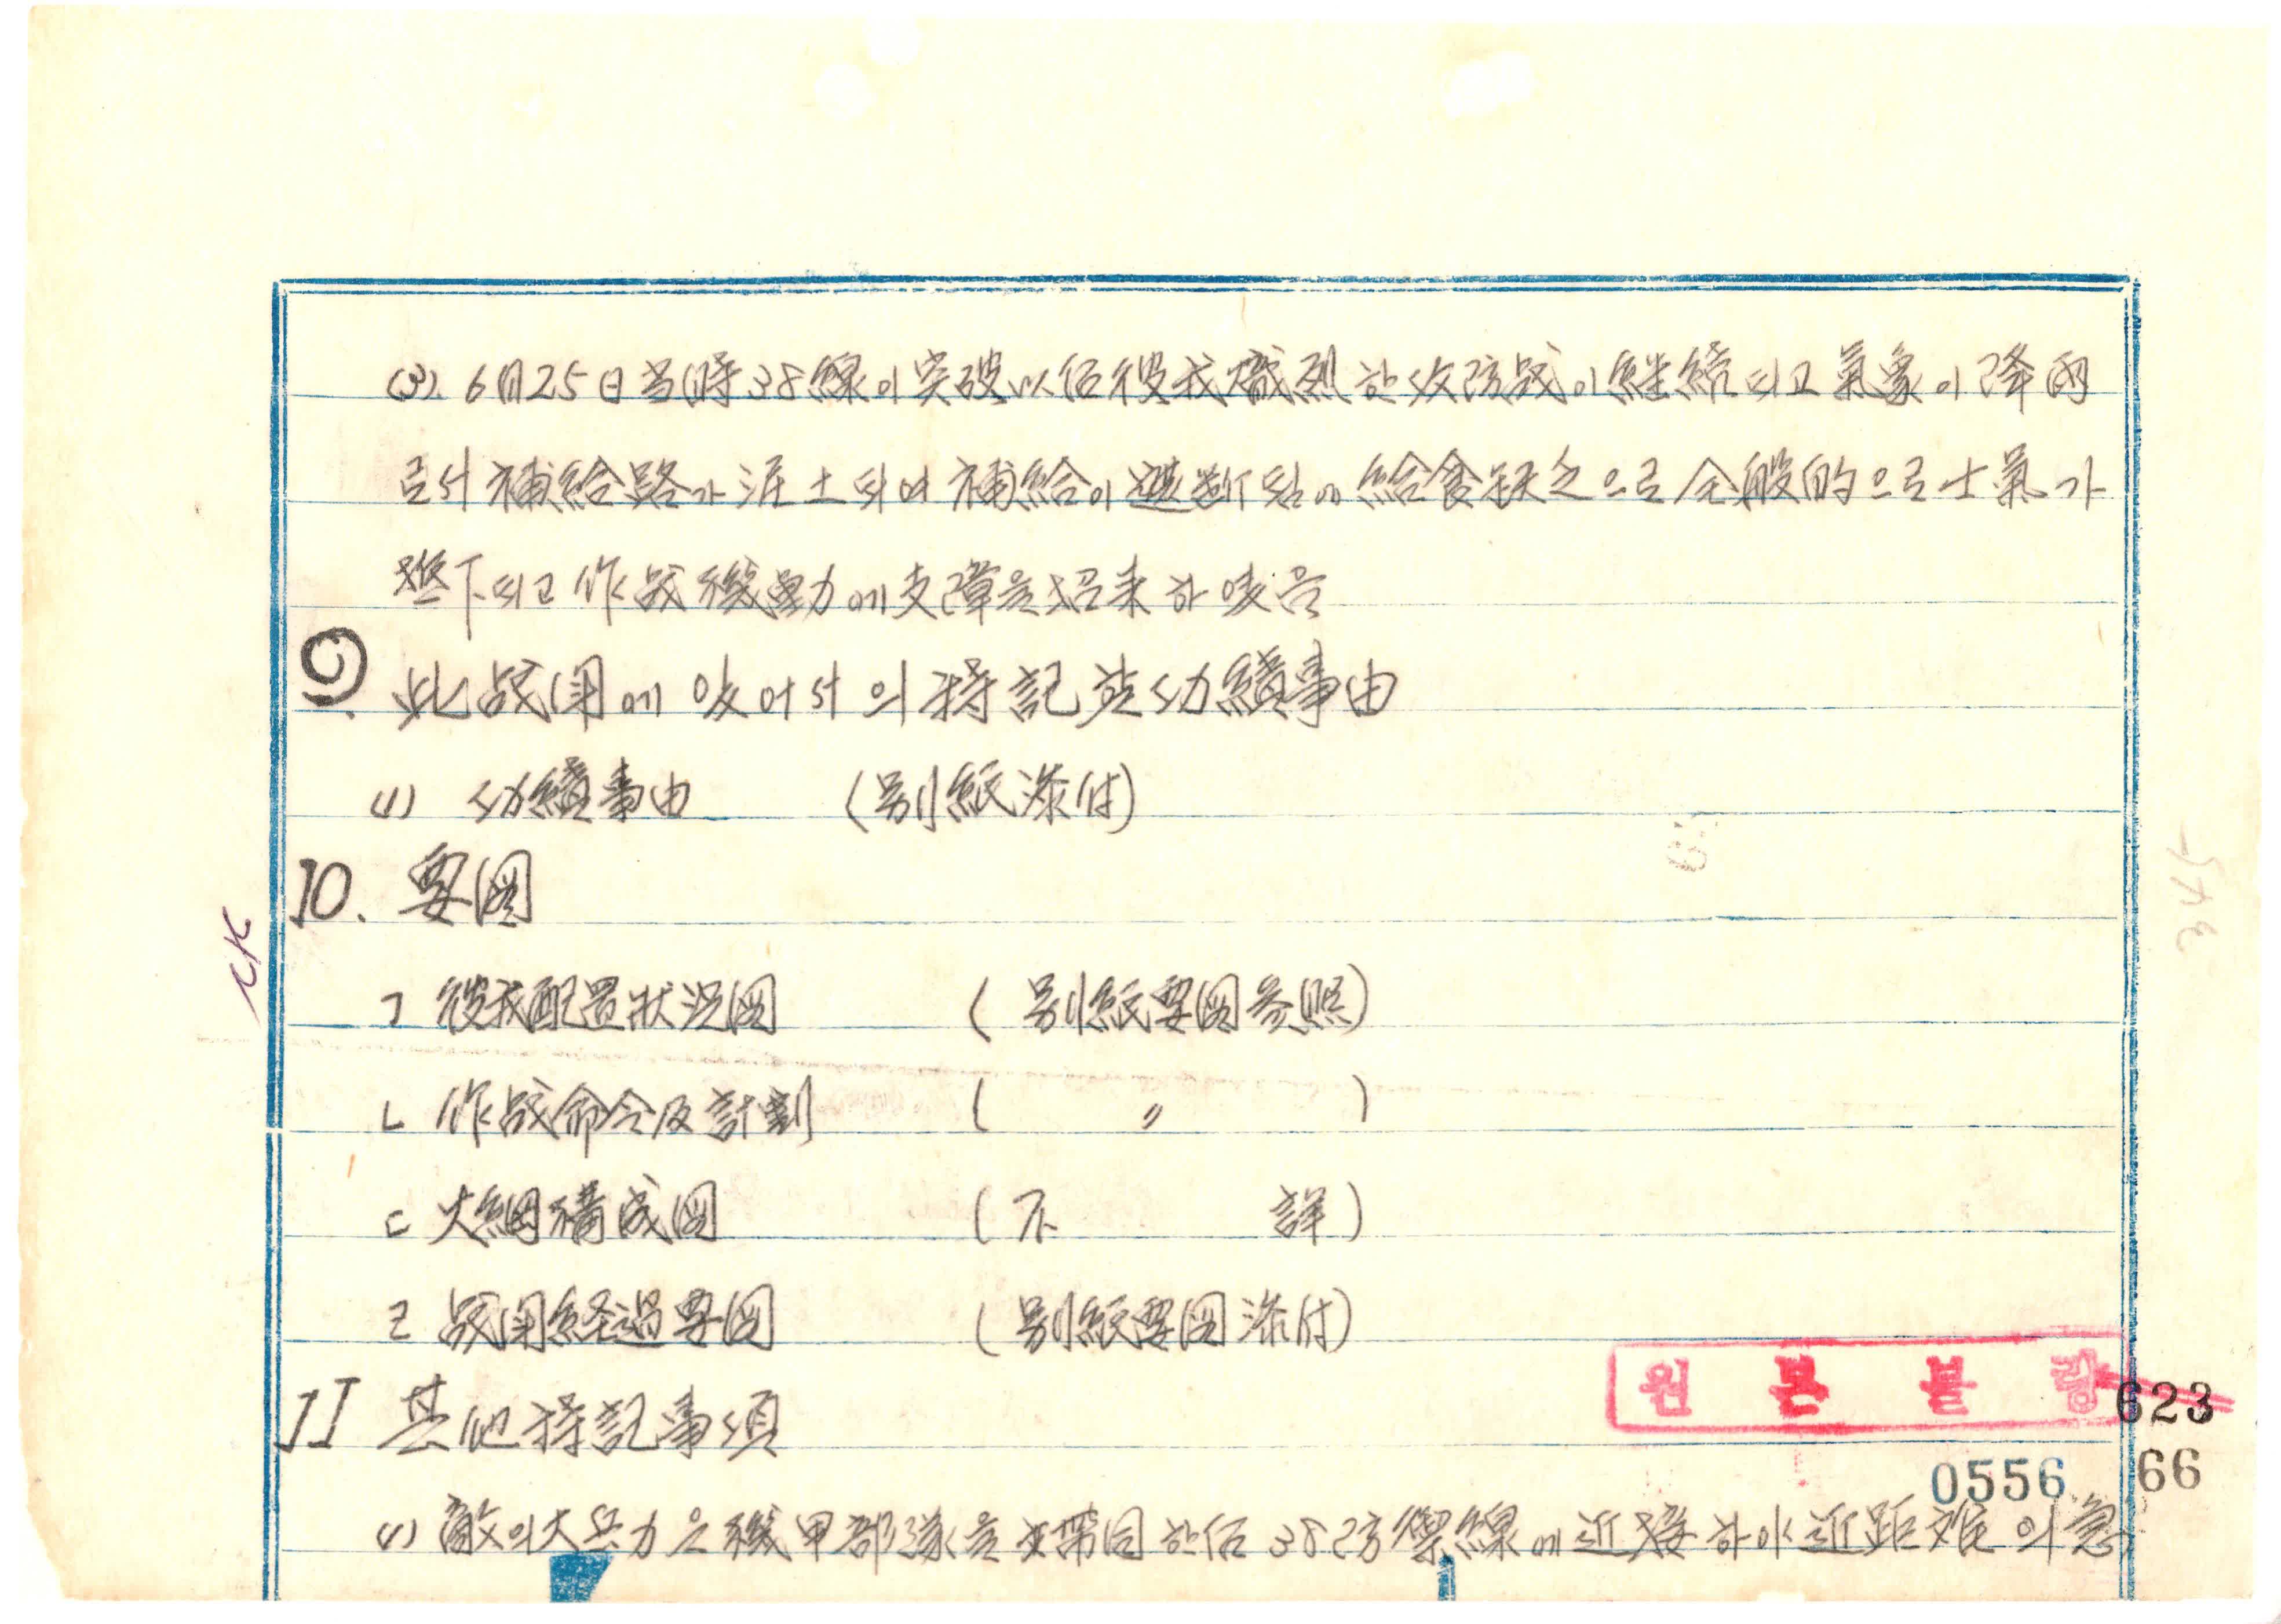 (3). 6月25日当時 38線이 突破以后 彼我 熾烈한 攻防战이 継続되고 氣象이 降雨
로서 補給路가 泥土되여 補給이 遮断됨에 給食缺乏으로 全般的으로 士氣가
低下되고 作战機動에 支障을 招来하였음
9. 此 战闘에 있어서의 特記할 功績事由
(1) 功績事由 (別紙添付)
10. 要図
ㄱ 彼我配置状況図 (別紙要図参照)
ㄴ 作战命令及計劃 ( 〃 )
ㄷ 火網構成図 (不 詳)
ㄹ 战闘経過要図 (別紙要図添付)
원본불량
623
11 其他特記事項
0556 66
(1) 敵의 大兵力은 機甲部隊을 帯同한 后 38防禦線에 近接하야 近距離의 急